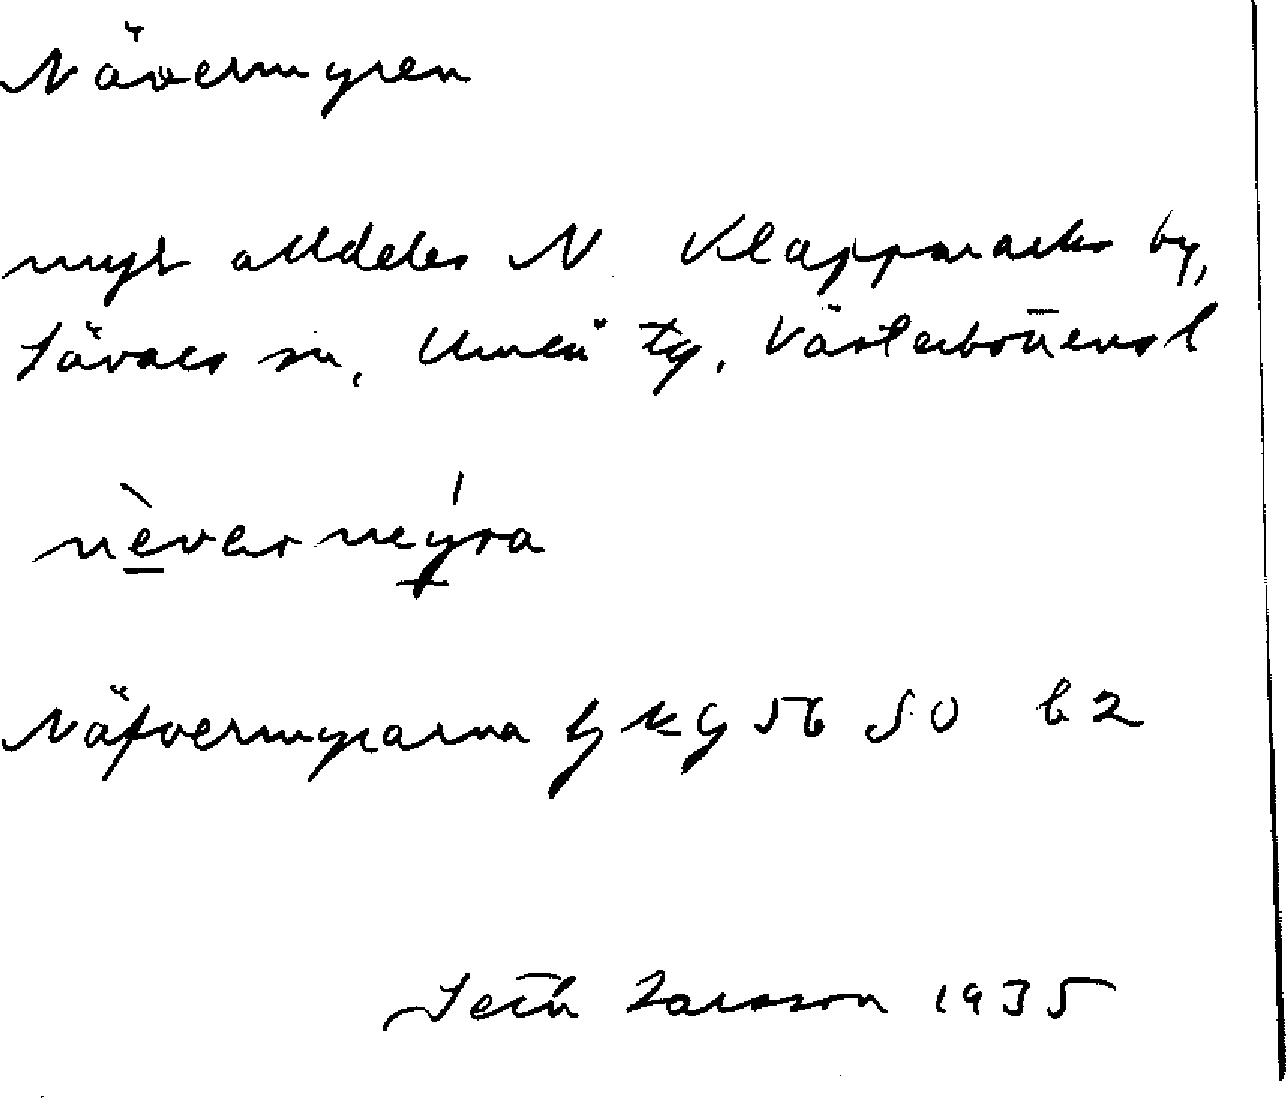 Nävermyren
myr alldeles N Klappmarks by,
Sävars sn, Umeå tg, Västerbottens l
nèvermýra
Näfvermyrarna gkg 56 SO b2
Seth Larsson 1935